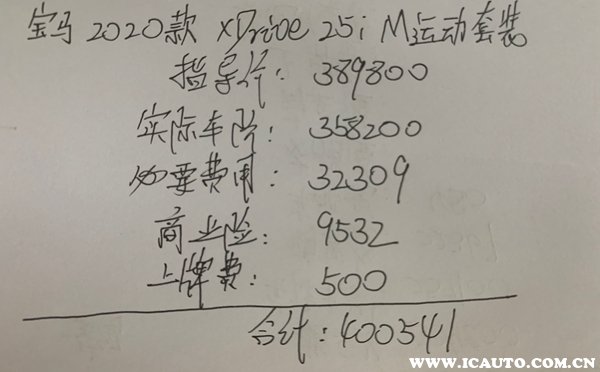 宝马 2020款 xDrive 25i M运动套装
指导价: 389800
实际车价: 358200
必要费用: 32309
商业险: 9532
上牌费: 500
合计: 400541
WWW.ICAUTO.COM.CN